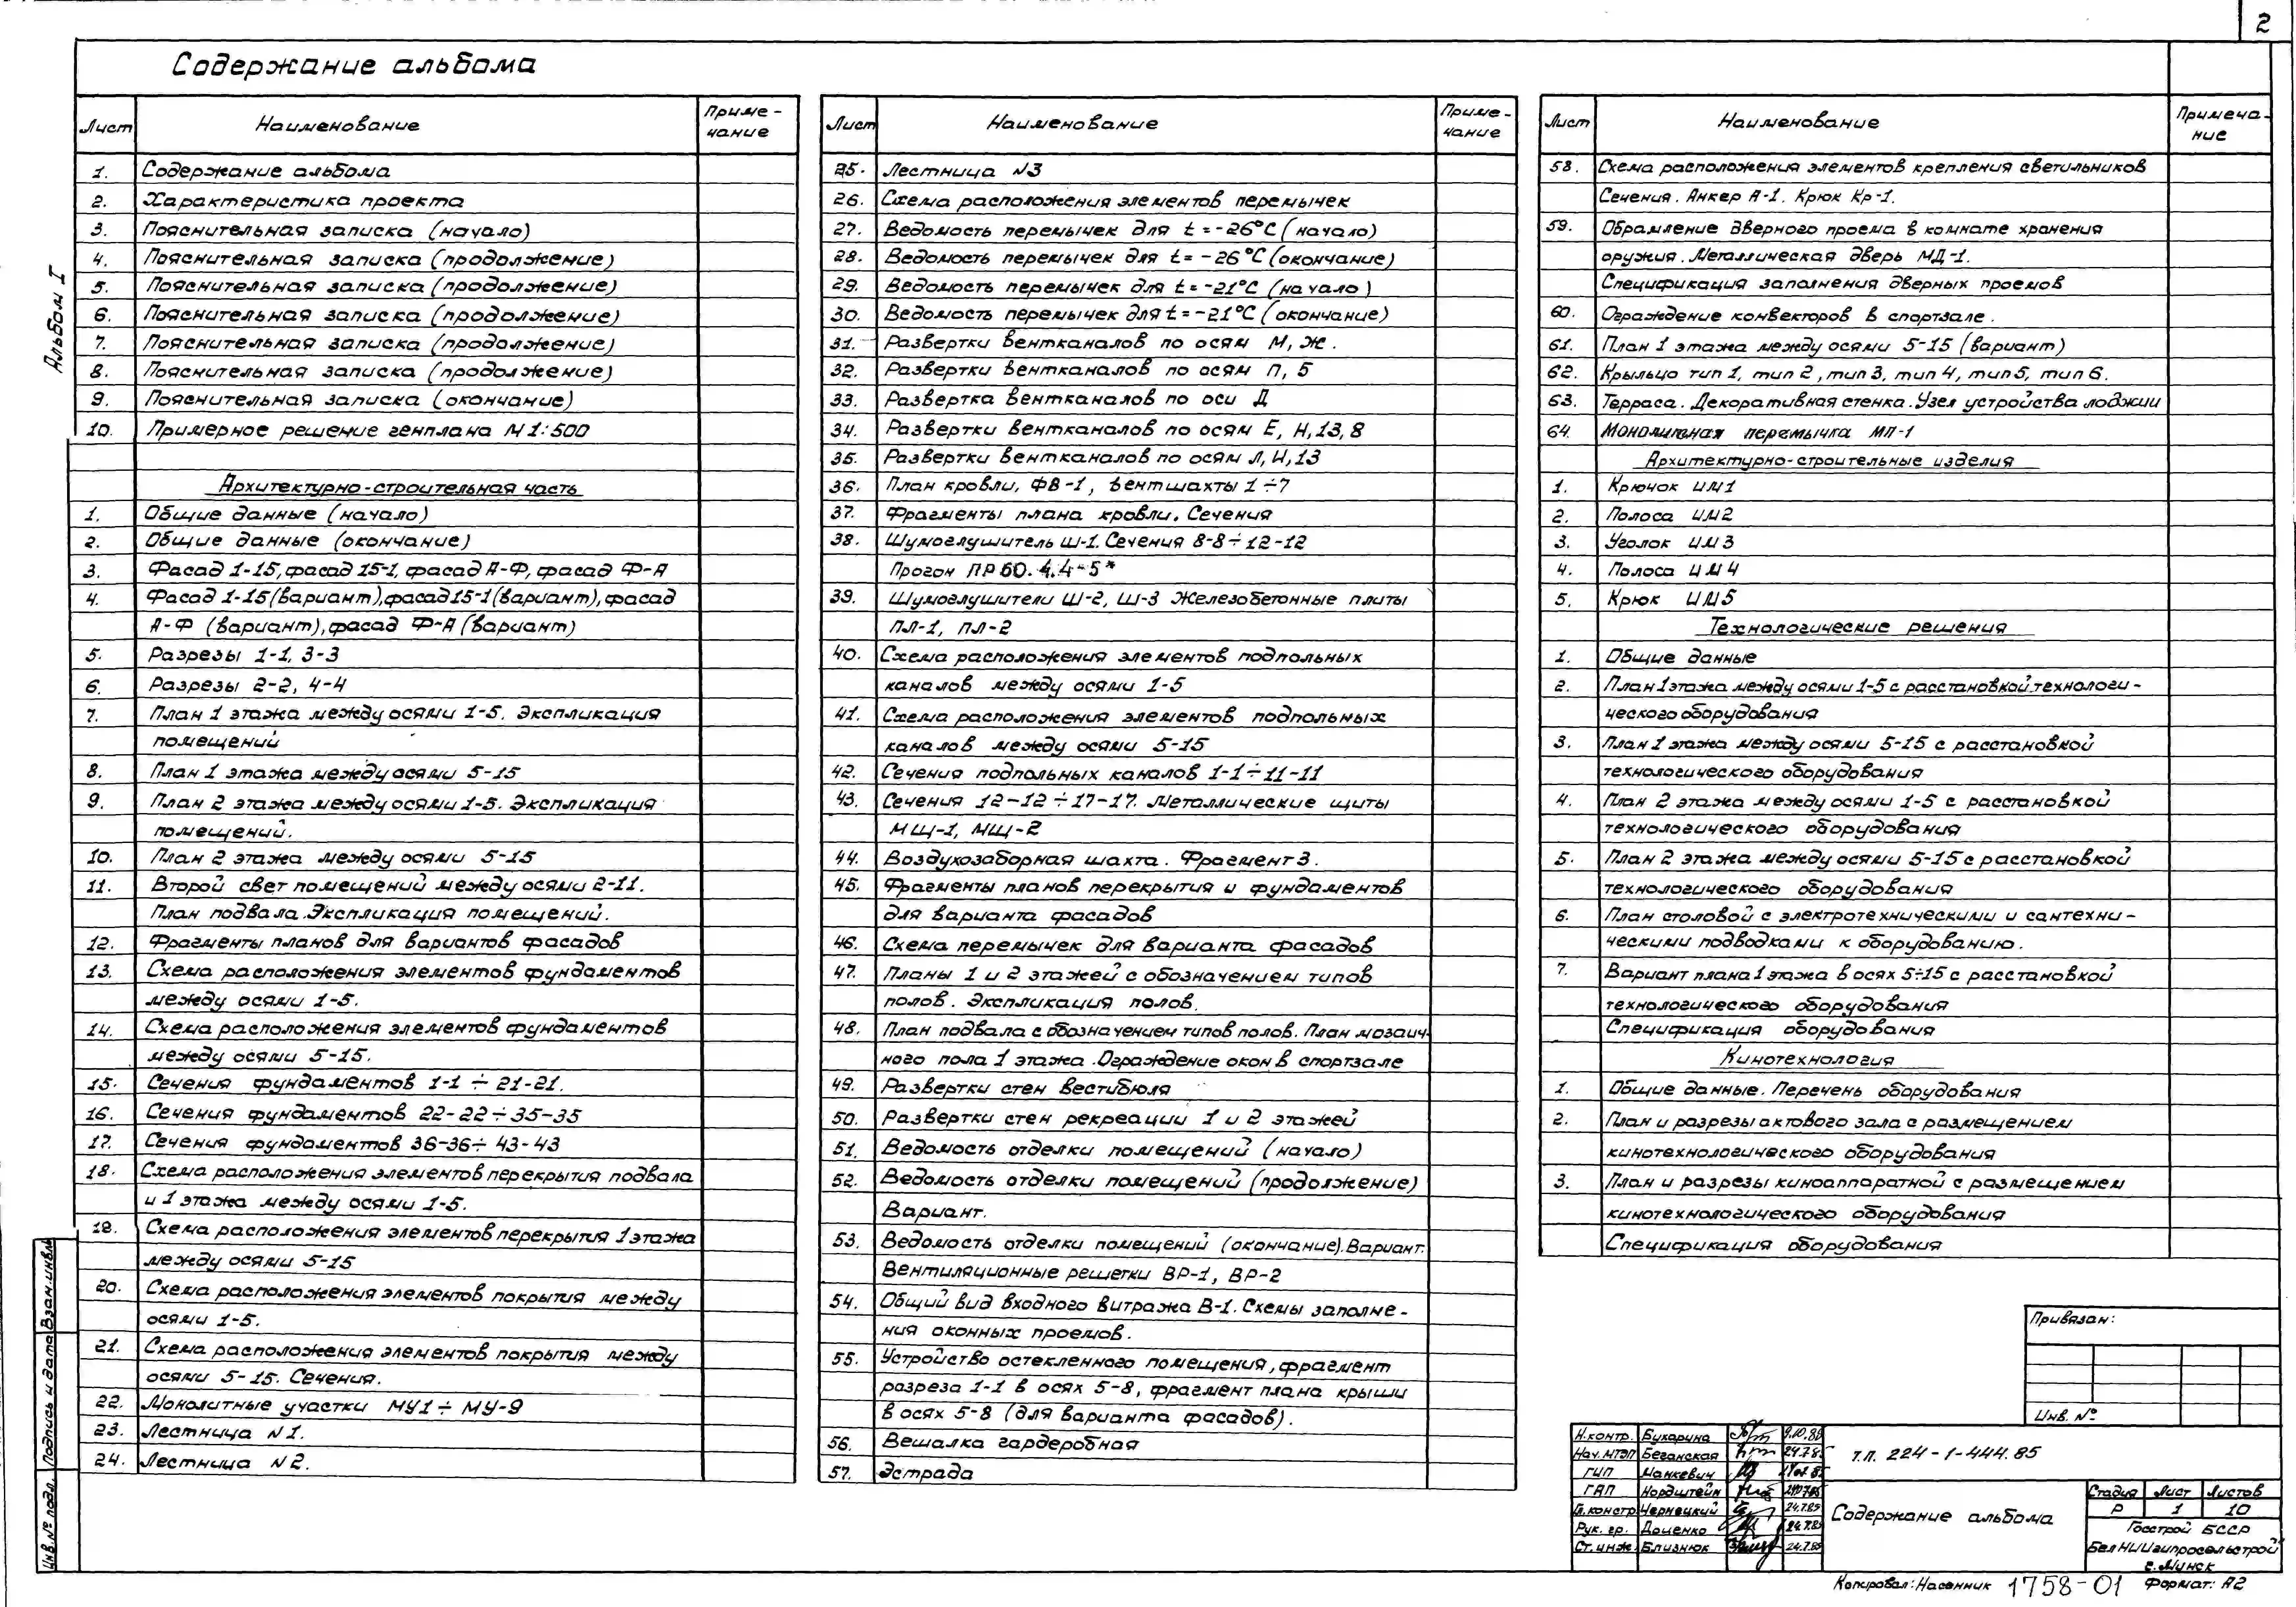 2
Содержание альбома
Альбом I
Лист Наименование Примечание
1. Содержание альбома
2. Характеристика проекта
3. Пояснительная записка (начало)
4. Пояснительная записка (продолжение)
5. Пояснительная записка (продолжение)
6. Пояснительная записка (продолжение)
7. Пояснительная записка (продолжение)
8. Пояснительная записка (продолжение)
9. Пояснительная записка (окончание)
10. Примерное решение генплана М 1:500
Архитектурно-строительная часть
1. Общие данные (начало)
2. Общие данные (окончание)
3. Фасад 1-15, фасад 15-1, фасад А-Ф, фасад Ф-А
4. Фасад 1-15 (вариант), фасад 15-1 (вариант), фасад
А-Ф (вариант), фасад Ф-А (вариант)
5. Разрезы 1-1, 3-3
6. Разрезы 2-2, 4-4
7. План 1 этажа между осями 1-5. Экспликация
помещений
8. План 1 этажа между осями 5-15
9. План 2 этажа между осями 1-5. Экспликация
помещений.
10. План 2 этажа между осями 5-15
11. Второй свет помещений между осями 2-11.
План подвала. Экспликация помещений.
12. Фрагменты планов для вариантов фасадов
13. Схема расположения элементов фундаментов
между осями 1-5.
14. Схема расположения элементов фундаментов
между осями 5-15.
15. Сечения фундаментов 1-1 ÷ 21-21.
16. Сечения фундаментов 22-22 ÷ 35-35
17. Сечения фундаментов 36-36 ÷ 43-43
18. Схема расположения элементов перекрытия подвала
и 1 этажа между осями 1-5.
19. Схема расположения элементов перекрытия 1 этажа
между осями 5-15
20. Схема расположения элементов покрытия между
осями 1-5.
21. Схема расположения элементов покрытия между
осями 5-15. Сечения.
22. Монолитные участки МУ1 ÷ МУ-9
23. Лестница N 1.
24. Лестница N 2.
Лист Наименование Примечание
25. Лестница N3
26. Схема расположения элементов перемычек
27. Ведомость перемычек для t = -26°С (начало)
28. Ведомость перемычек для t = -26°С (окончание)
29. Ведомость перемычек для t = -21°С (начало)
30. Ведомость перемычек для t = -21°С (окончание)
31. Развертки вентканалов по осям М, Ж.
32. Развертки вентканалов по осям П, 5
33. Развертка вентканалов по оси Д
34. Развертки вентканалов по осям Е, Н, 13, 8
35. Развертки вентканалов по осям Л, И, 13
36. План кровли, ФВ-1, вентшахты 1 ÷ 7
37. Фрагменты плана кровли. Сечения
38. Шумоглушитель Ш-1. Сечения 8-8 ÷ 12-12
Прогон ПР60.4.4-5*
39. Шумоглушители Ш-2, Ш-3 Железобетонные плиты
ПЛ-1, ПЛ-2
40. Схема расположения элементов подпольных
каналов между осями 1-5
41. Схема расположения элементов подпольных
каналов между осями 5-15
42. Сечения подпольных каналов 1-1 ÷ 11-11
43. Сечения 12-12 ÷ 17-17. Металлические щиты
МЩ-1, МЩ-2
44. Воздухозаборная шахта. Фрагмент 3.
45. Фрагменты планов перекрытия и фундаментов
для варианта фасадов
46. Схема перемычек для варианта фасадов
47. Планы 1 и 2 этажей с обозначением типов
полов. Экспликация полов.
48. План подвала с обозначением типов полов. План мозаич-
ного пола 1 этажа. Ограждение окон в спортзале
49. Развертки стен вестибюля
50. Развертки стен рекреации 1 и 2 этажей
51. Ведомость отделки помещений (начало)
52. Ведомость отделки помещений (продолжение)
Вариант.
53. Ведомость отделки помещений (окончание). Вариант.
Вентиляционные решетки ВР-1, ВР-2
54. Общий вид входного витража В-1. Схемы заполне-
ния оконных проемов.
55. Устройство остекленного помещения, фрагмент
разреза 1-1 в осях 5-8, фрагмент плана крыши
в осях 5-8 (для варианта фасадов).
56. Вешалка гардеробная
57. Эстрада
Лист Наименование Примечание
58. Схема расположения элементов крепления светильников
Сечения. Анкер А-1. Крюк Кр-1.
59. Обрамление дверного проема в комнате хранения
оружия. Металлическая дверь МД-1.
Спецификация заполнения дверных проемов
60. Ограждение конвекторов в спортзале.
61. План 1 этажа между осями 5-15 (вариант)
62. Крыльцо тип 1, тип 2, тип 3, тип 4, тип 5, тип 6.
63. Терраса. Декоративная стенка. Узел устройства лоджии
64. Монолитная перемычка МП-1
Архитектурно-строительные изделия
1. Крючок ИМ1
2. Полоса ИМ2
3. Уголок ИМ3
4. Полоса ИМ4
5. Крюк ИМ5
Технологические решения
1. Общие данные
2. План 1 этажа между осями 1-5 с расстановкой технологи-
ческого оборудования
3. План 1 этажа между осями 5-15 с расстановкой
технологического оборудования
4. План 2 этажа между осями 1-5 с расстановкой
технологического оборудования
5. План 2 этажа между осями 5-15 с расстановкой
технологического оборудования
6. План столовой с электротехническими и сантехни-
ческими подводками к оборудованию.
7. Вариант плана 1 этажа в осях 5÷15 с расстановкой
технологического оборудования
Спецификация оборудования
Кинотехнология
1. Общие данные. Перечень оборудования
2. План и разрезы актового зала с размещением
кинотехнологического оборудования
3. План и разрезы киноаппаратной с размещением
кинотехнологического оборудования
Спецификация оборудования
Привязан:
Инв. №
Н.контр. Бухарина 9.10.85
Нач.МТЭП Беганская 24.7.85
ГИП Манкевич
ГАП Нордштейн
Гл.констр Чернецкий 24.7.85
Рук. гр. Доценко 24.7.85
Ст.инж. Близнюк 24.7.85
т.п. 224-1-444.85
Содержание альбома
Стадия Лист Листов
Р 1 10
Госстрой БССР
БелНИИгипросельстрой
г. Минск
Копировал: Насенник 1758-01 Формат: А2
Инв.№ подл. Подпись и дата Взам.инв№